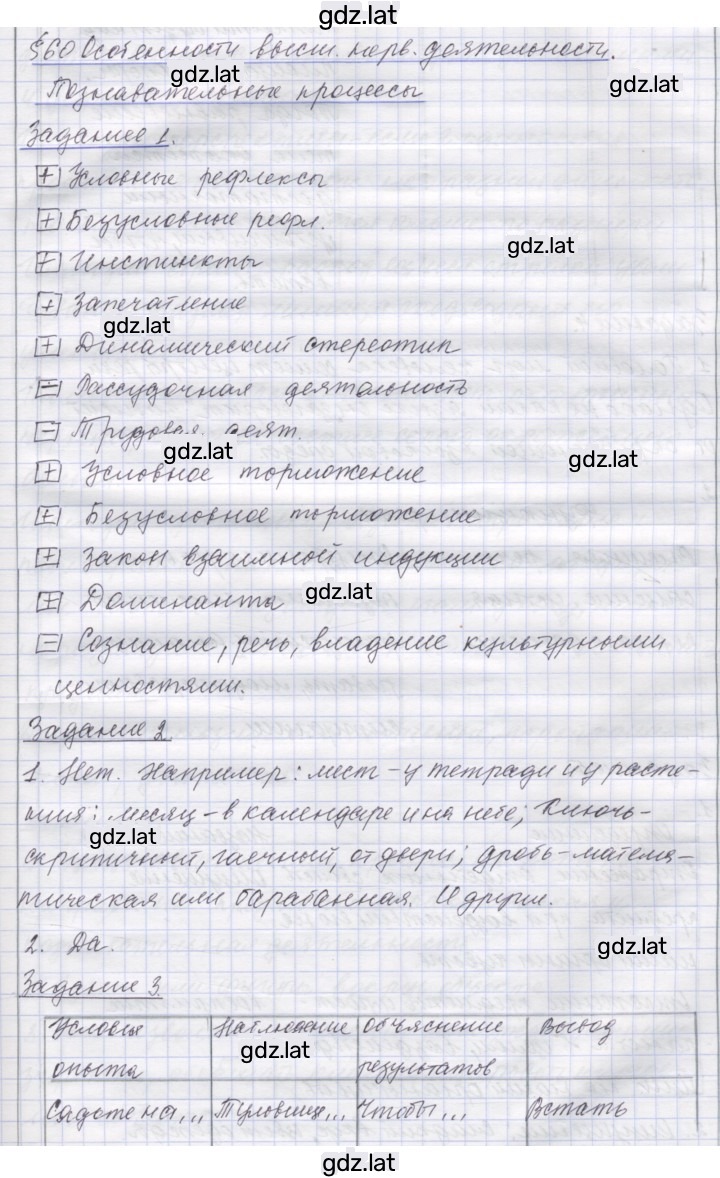 gdz.lat
§60 Особенности высш. нерв. деятельности.
gdz.lat
gdz.lat
Познавательные процессы
Задание 1.
+ Условные рефлексы
+ Безусловные рефл.
gdz.lat
+ Инстинкты
+ Запечатление
gdz.lat
+ Динамический стереотип
− Рассудочная деятельность
− Трудовая деят.
gdz.lat
gdz.lat
+ Условное торможение
+ Безусловное торможение
+ Закон взаимной индукции
+ Доминанта
gdz.lat
− Сознание, речь, владение культурными
ценностями.
Задание 2
1. Нет. Например: лист – у тетради и у расте-
ния; месяц – в календаре и на небе; Ключ-
gdz.lat
скрипичный, гаечный, от двери; дробь – матема-
тическая или барабанная. И другие.
2. Да.
gdz.lat
Задание 3
Условия опыта | Наблюдение | Объяснение результатов | Вывод
gdz.lat
Сядьте на... | Туловище... | Чтобы... | Встать
gdz.lat